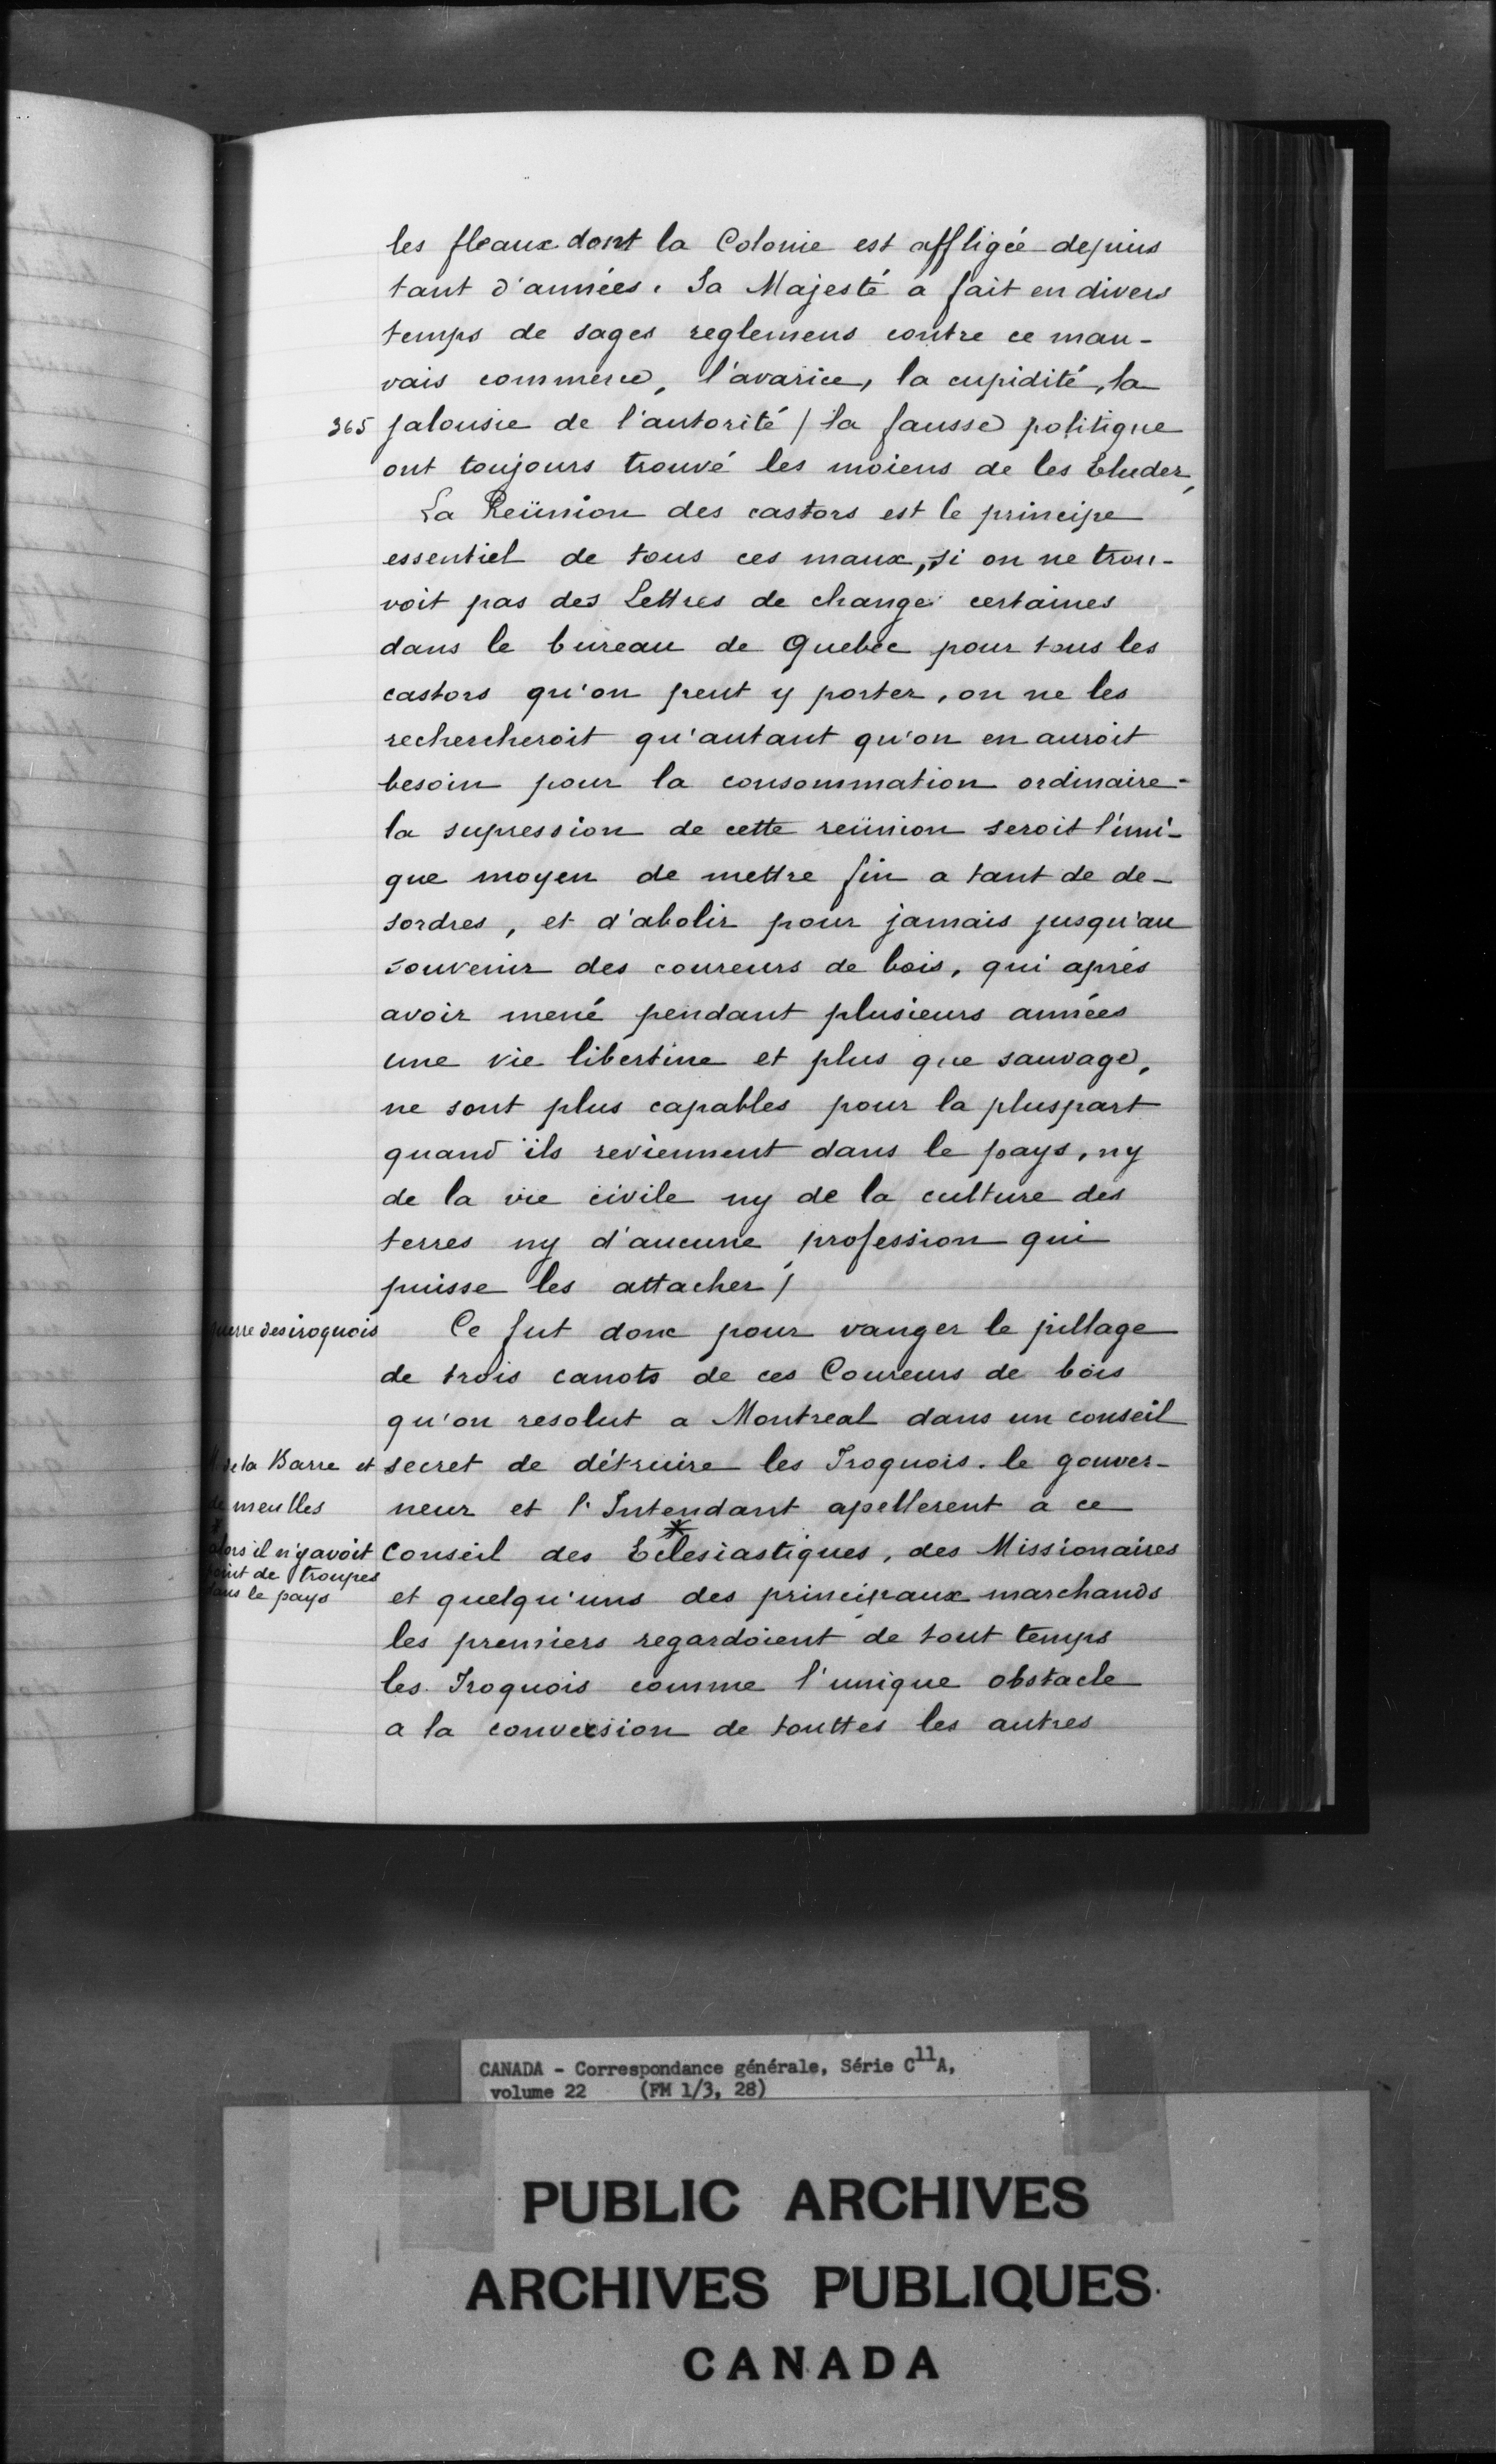 les fleaux dont la Colonie est affligée depuis
tant d'années. Sa Majesté a fait en divers
temps de sages reglemens contre ce mau-
vais commerce, l'avarice, la cupidité, la
365 jalousie de l'autorité / la fausse politique
ont toujours trouvé les moiens de les Eluder,
La Reünion des castors est le principe
essentiel de tous ces maux, si on ne trou-
voit pas des Lettres de change certaines
dans le bureau de Quebec pour tous les
castors qu'on peut y porter, on ne les
rechercheroit qu'autant qu'on en auroit
besoin pour la consommation ordinaire-
la supression de cette reünion seroit l'uni-
que moyen de mettre fin a tant de de-
sordres, et d'abolir pour jamais jusqu'au
souvenir des coureurs de bois, qui aprés
avoir mené pendant plusieurs années
une vie libertine et plus que sauvage,
ne sont plus capables pour la pluspart
quand ils reviennent dans le pays, ny
de la vie civile ny de la culture des
terres ny d'aucune profession qui
puisse les attacher /
guerre des iroquois
Ce fut donc pour vanger le pillage
de trois canots de ces Coureurs de bois
qu'on resolut a Montreal dans un conseil
de la Barre et
secret de détruire les Iroquois. le gouver-
de meulles
neur et l'Intendant apellerent a ce
*
alors il n'y avoit
point de troupes
dans le pays
Conseil des Eclesiastiques, des Missionaires
et quelqu'uns des principaux marchands
les premiers regardoient de tout temps
les Iroquois comme l'unique obstacle
a la conversion de touttes les autres
CANADA - Correspondance générale, Série C11A,
volume 22 (FM 1/3, 28)
PUBLIC ARCHIVES
ARCHIVES PUBLIQUES
CANADA